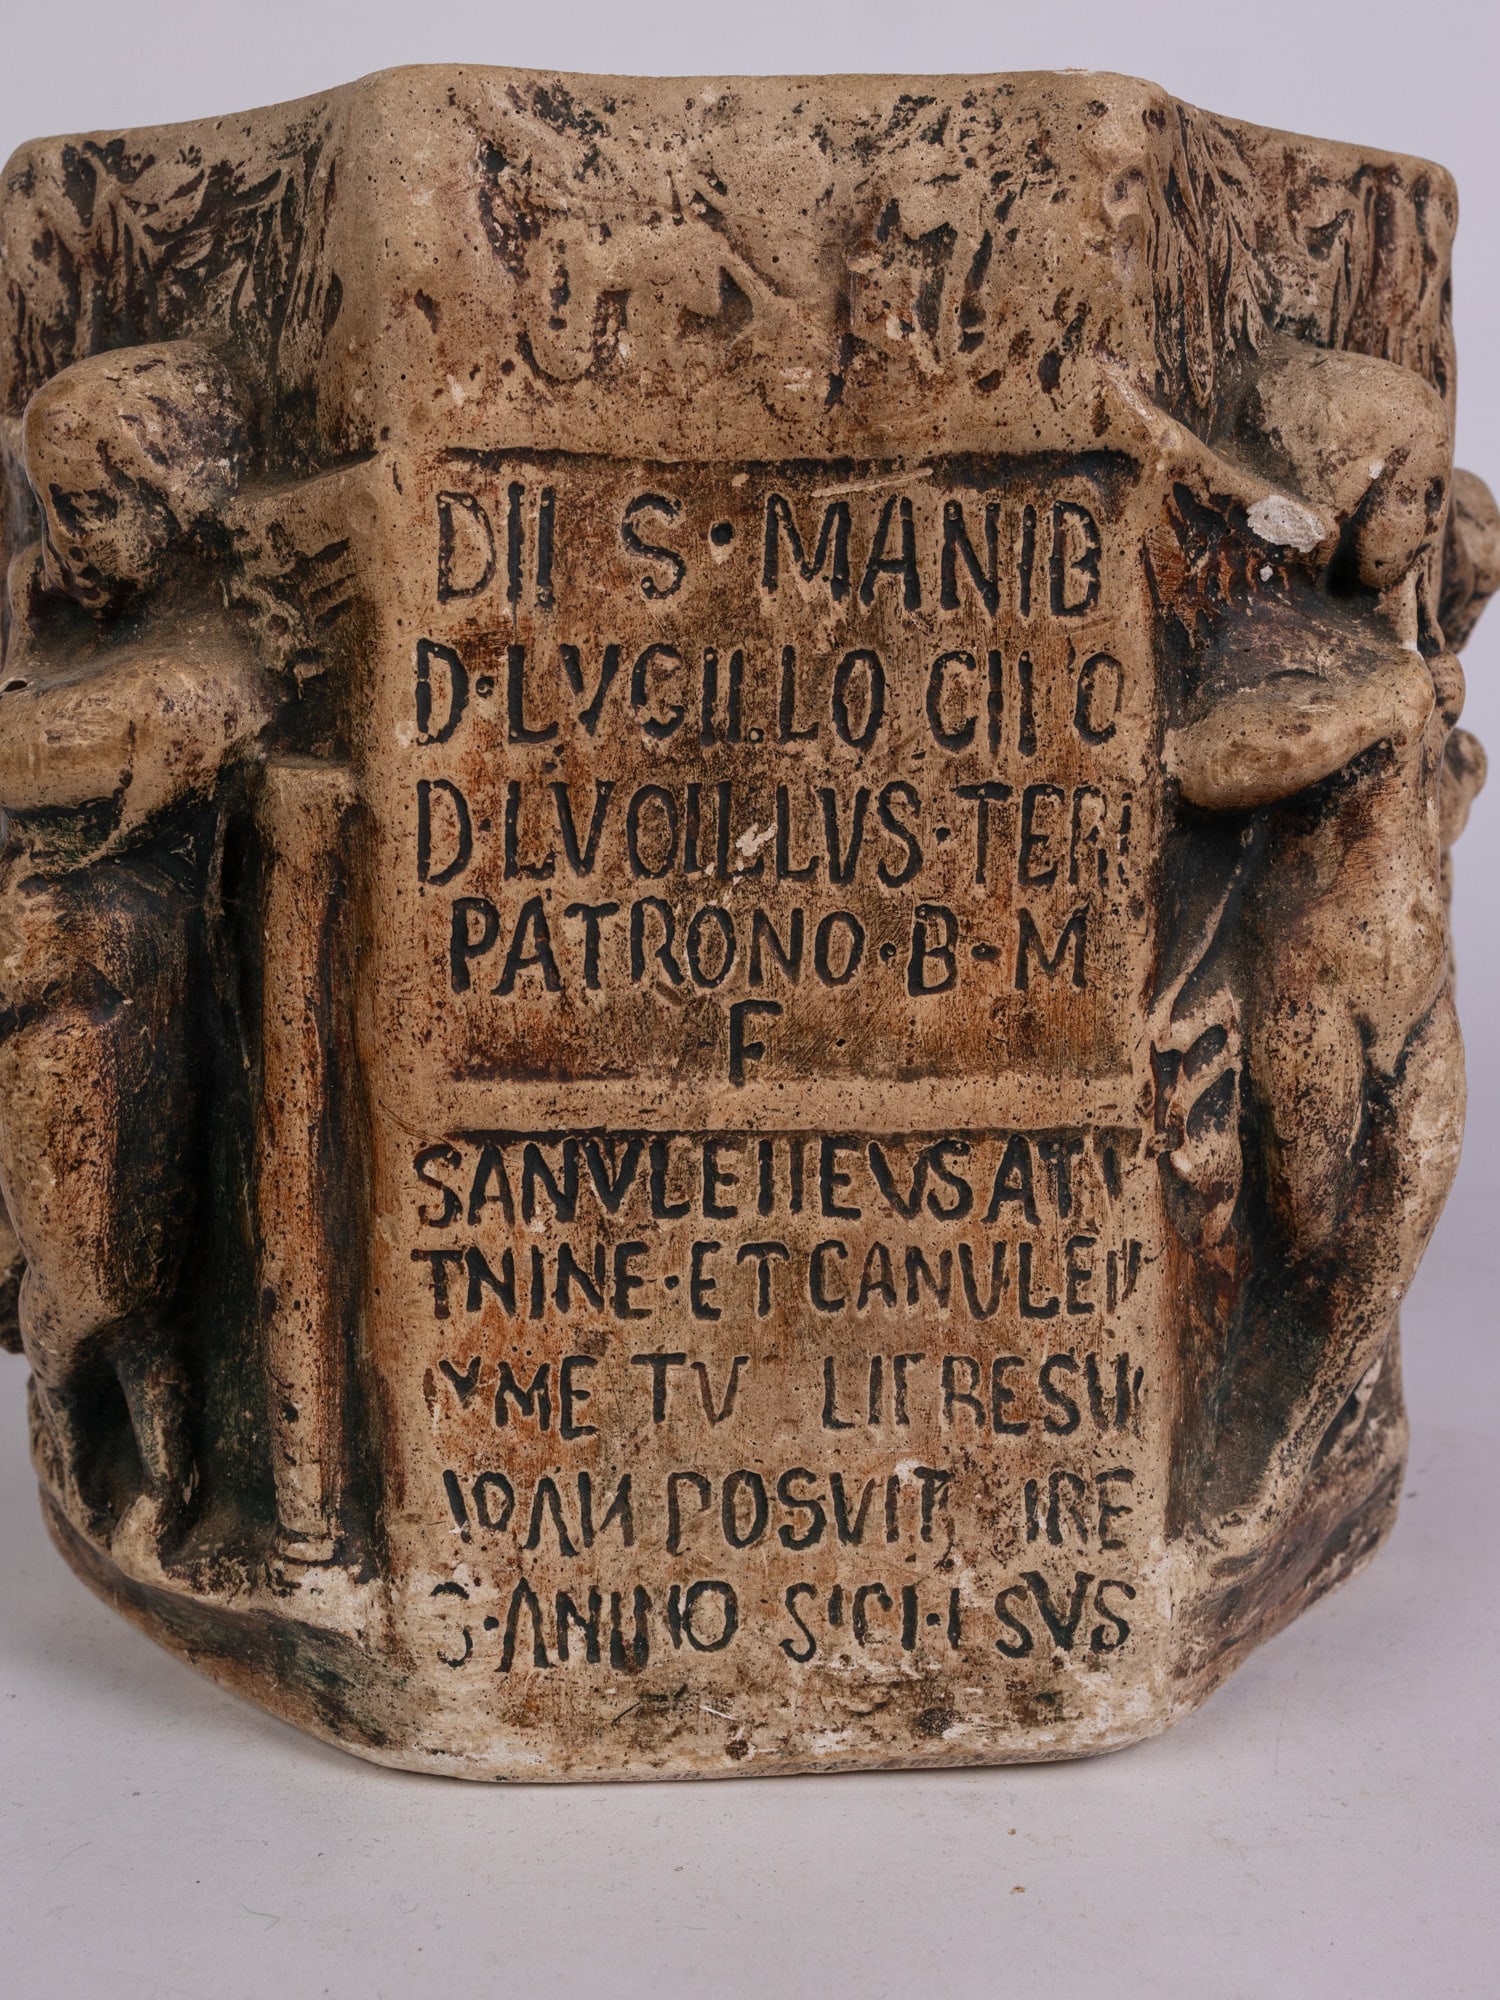 DII S · MANIB
D · LVCILLO CII O
D · LVOILLVS · TERI
PATRONO · B · M
F
SANVLEIIEVSAT
TNINE · ET CANVLEII
ME TV LII RESV
POSVIT, IRE
ANINO SICI · I SVS